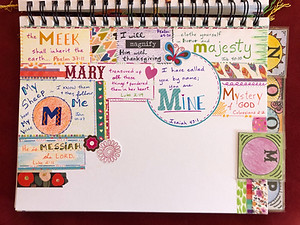 the MEEK
shall inherit the
earth... Psalm 37:11
I will
magnify
Him with
thanksgiving
clothe yourself
majesty
MARY
treasured up
all these
things &
pondered them
in her heart.
Luke 2:19
I have called
you by name;
you are
MINE
Isaiah 43:1
My
Sheep
I know them
& they follow
Me
M
Mystery
of GOD
MESSIAH
the LORD.
Luke 2:11
N
O
M